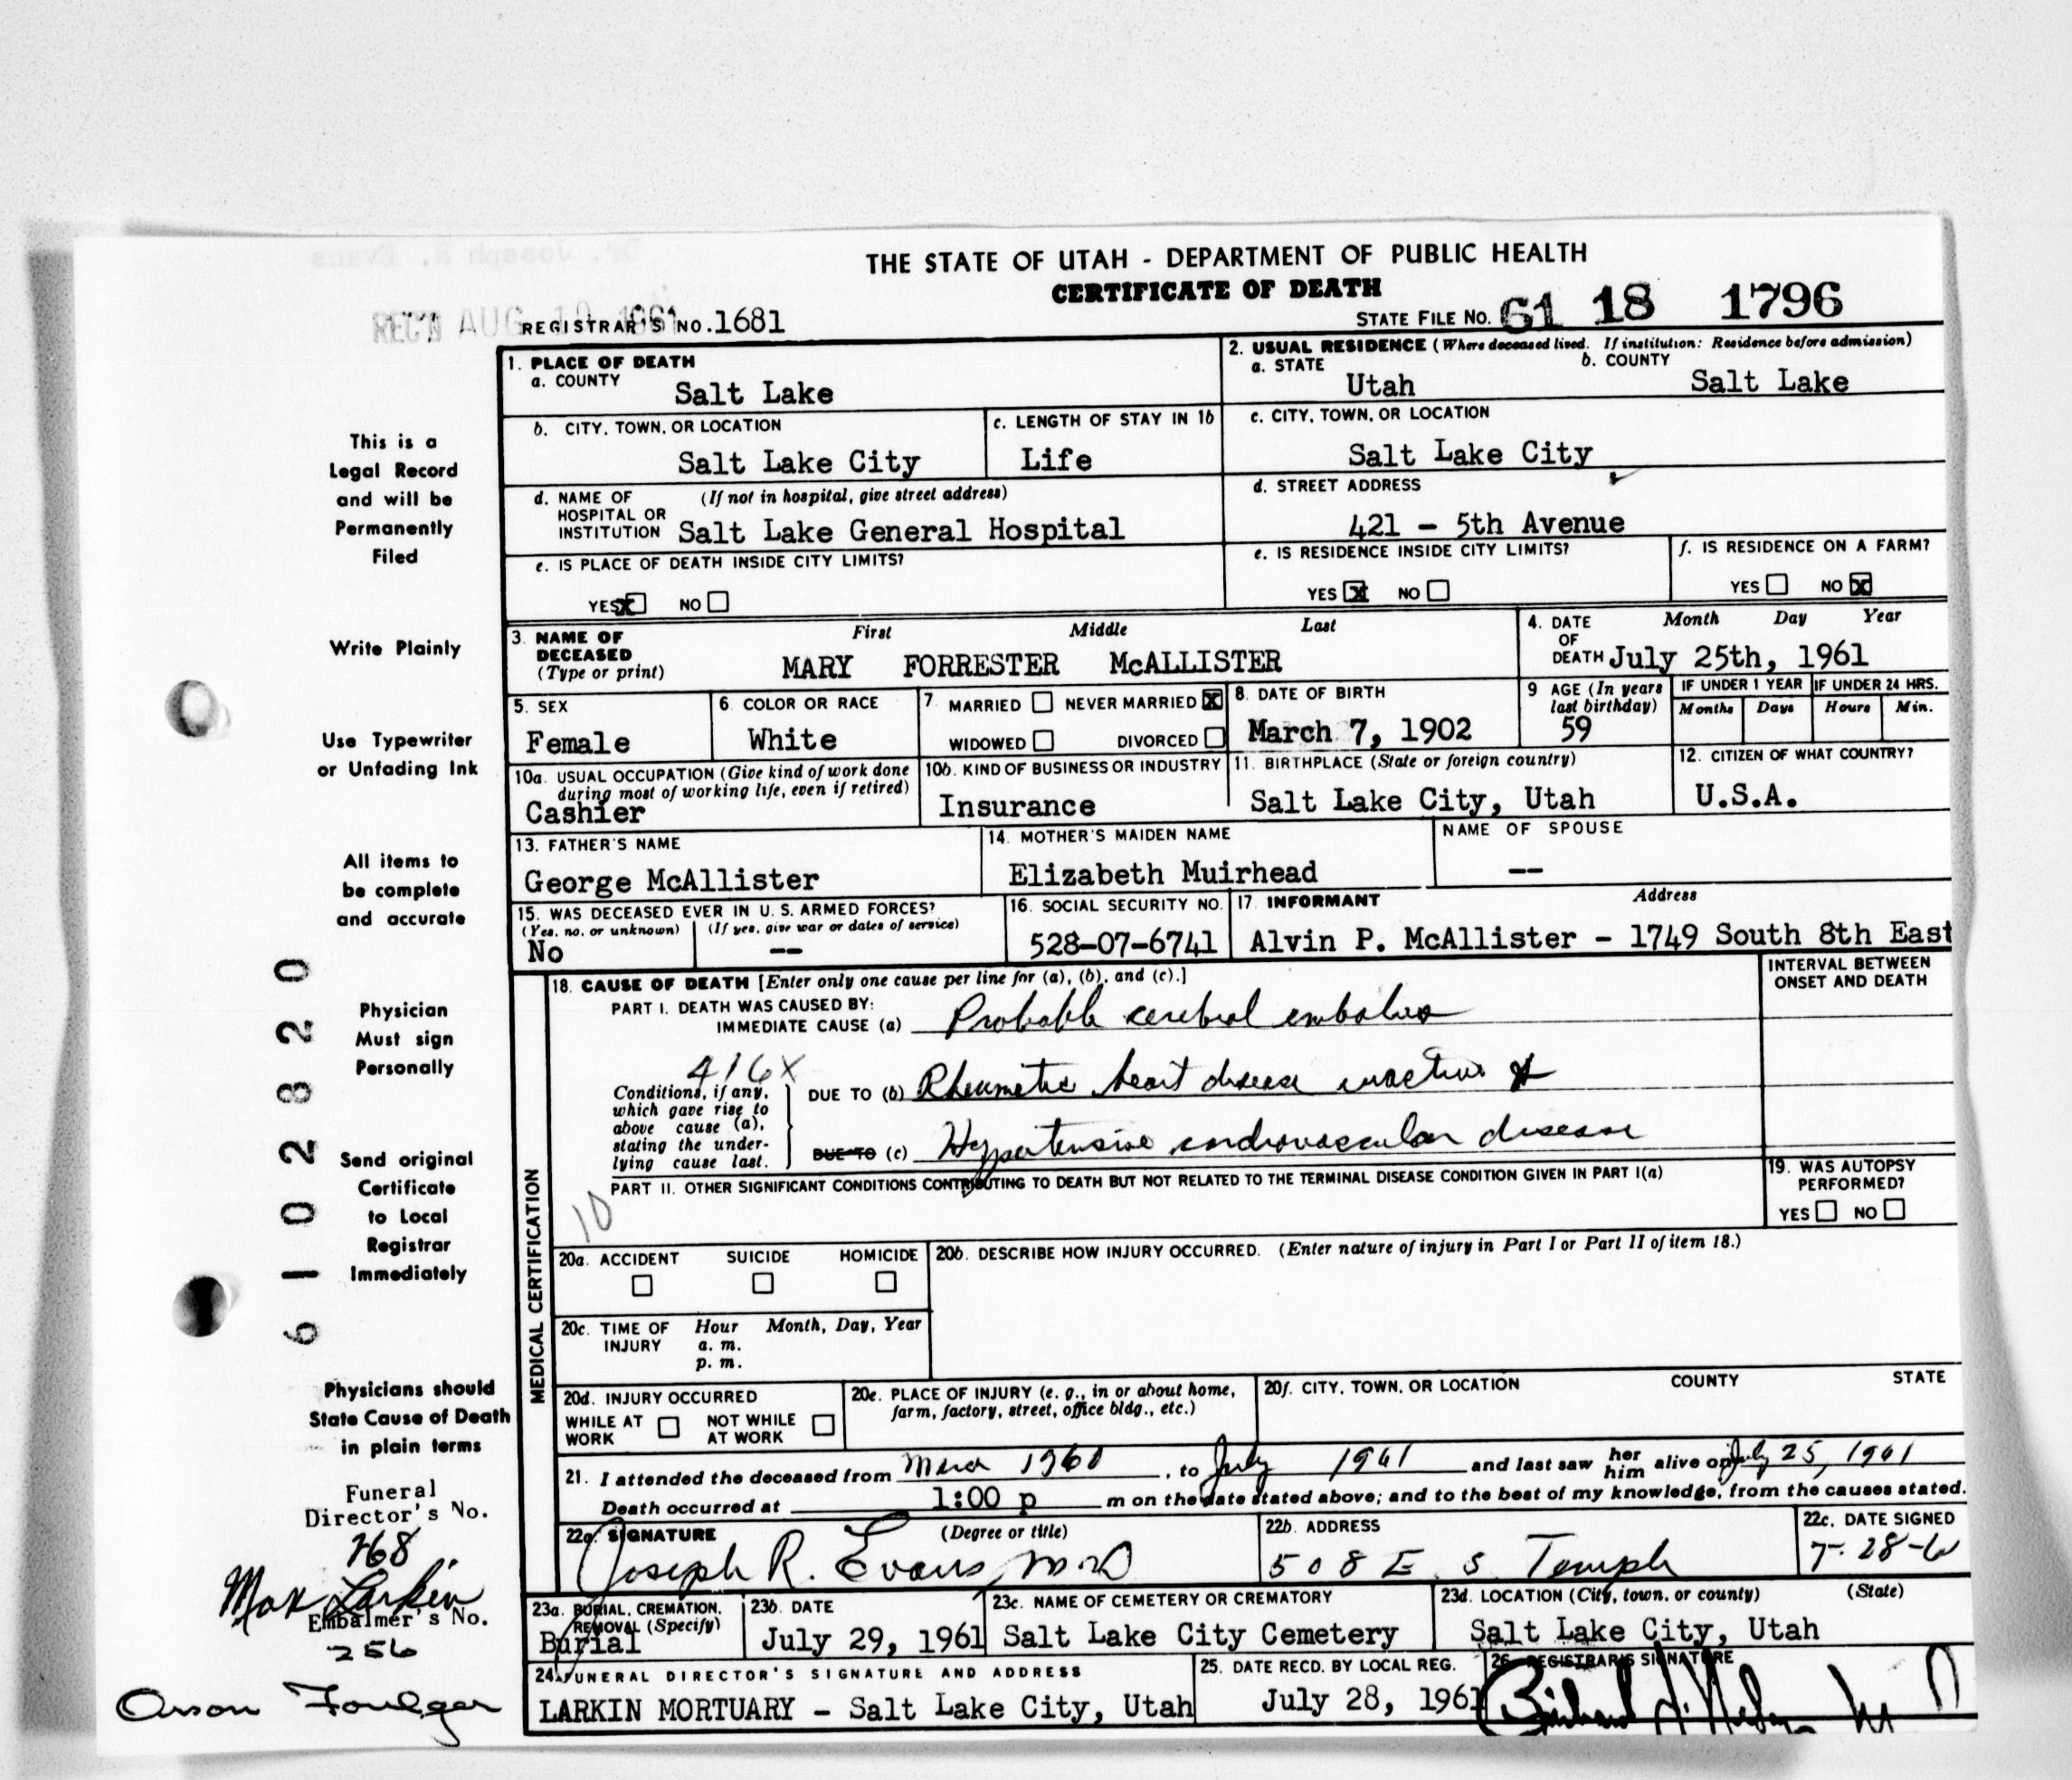 THE STATE OF UTAH - DEPARTMENT OF PUBLIC HEALTH
CERTIFICATE OF DEATH
REC'D AUG 10 1961
REGISTRAR'S NO. 1681
STATE FILE NO. 61 18 1796
1. PLACE OF DEATH
a. COUNTY
Salt Lake
2. USUAL RESIDENCE (Where deceased lived. If institution: Residence before admission)
a. STATE
Utah
b. COUNTY
Salt Lake
b. CITY, TOWN, OR LOCATION
Salt Lake City
c. LENGTH OF STAY IN 1b
Life
c. CITY, TOWN, OR LOCATION
Salt Lake City
d. NAME OF HOSPITAL OR INSTITUTION
(If not in hospital, give street address)
Salt Lake General Hospital
d. STREET ADDRESS
421 - 5th Avenue
e. IS PLACE OF DEATH INSIDE CITY LIMITS?
YES X NO
e. IS RESIDENCE INSIDE CITY LIMITS?
YES X NO
f. IS RESIDENCE ON A FARM?
YES NO X
3. NAME OF DECEASED (Type or print)
First Middle Last
MARY FORRESTER McALLISTER
4. DATE OF DEATH
Month Day Year
July 25th, 1961
5. SEX
Female
6. COLOR OR RACE
White
7. MARRIED NEVER MARRIED X
WIDOWED DIVORCED
8. DATE OF BIRTH
March 7, 1902
9 AGE (In years last birthday)
59
IF UNDER 1 YEAR
Months Days
IF UNDER 24 HRS.
Hours Min.
10a. USUAL OCCUPATION (Give kind of work done during most of working life, even if retired)
Cashier
10b. KIND OF BUSINESS OR INDUSTRY
Insurance
11. BIRTHPLACE (State or foreign country)
Salt Lake City, Utah
12. CITIZEN OF WHAT COUNTRY?
U.S.A.
13. FATHER'S NAME
George McAllister
14. MOTHER'S MAIDEN NAME
Elizabeth Muirhead
NAME OF SPOUSE
--
15. WAS DECEASED EVER IN U. S. ARMED FORCES?
(Yes, no, or unknown) (If yes, give war or dates of service)
No --
16. SOCIAL SECURITY NO.
528-07-6741
17. INFORMANT Address
Alvin P. McAllister - 1749 South 8th East
MEDICAL CERTIFICATION
18. CAUSE OF DEATH [Enter only one cause per line for (a), (b), and (c).]
INTERVAL BETWEEN ONSET AND DEATH
PART I. DEATH WAS CAUSED BY:
IMMEDIATE CAUSE (a) Probable cerebral embolus
416X
Conditions, if any, which gave rise to above cause (a), stating the underlying cause last.
DUE TO (b) Rheumatic heart disease inactive &
DUE TO (c) Hypertensive cardiovascular disease
PART II. OTHER SIGNIFICANT CONDITIONS CONTRIBUTING TO DEATH BUT NOT RELATED TO THE TERMINAL DISEASE CONDITION GIVEN IN PART I(a)
10
19. WAS AUTOPSY PERFORMED?
YES NO
20a. ACCIDENT SUICIDE HOMICIDE
20b. DESCRIBE HOW INJURY OCCURRED. (Enter nature of injury in Part I or Part II of item 18.)
20c. TIME OF INJURY
Hour Month, Day, Year
a. m.
p. m.
20d. INJURY OCCURRED
WHILE AT WORK NOT WHILE AT WORK
20e. PLACE OF INJURY (e. g., in or about home, farm, factory, street, office bldg., etc.)
20f. CITY, TOWN, OR LOCATION COUNTY STATE
21. I attended the deceased from 1960, to July 1961 and last saw her him alive on July 25, 1961
Death occurred at 1:00 p m on the date stated above; and to the best of my knowledge, from the causes stated.
22a. SIGNATURE (Degree or title)
Joseph R. Evans, M.D
22b. ADDRESS
508 E. S. Temple
22c. DATE SIGNED
7-28-61
23a. BURIAL, CREMATION, REMOVAL (Specify)
Burial
23b. DATE
July 29, 1961
23c. NAME OF CEMETERY OR CREMATORY
Salt Lake City Cemetery
23d. LOCATION (City, town, or county) (State)
Salt Lake City, Utah
24. FUNERAL DIRECTOR'S SIGNATURE AND ADDRESS
LARKIN MORTUARY - Salt Lake City, Utah
25. DATE RECD. BY LOCAL REG.
July 28, 1961
26. REGISTRAR'S SIGNATURE
This is a
Legal Record
and will be
Permanently
Filed
Write Plainly
Use Typewriter
or Unfading Ink
All items to
be complete
and accurate
Physician
Must sign
Personally
Send original
Certificate
to Local
Registrar
Immediately
Physicians should
State Cause of Death
in plain terms
6102820
Funeral
Director's No.
768
Max Larkin
Embalmer's No.
256
Orson Foulger